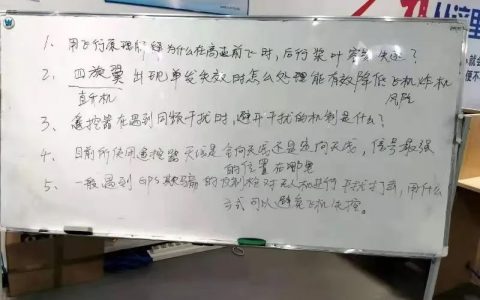 从这里
1、用飞行原理解释为什么在高速前飞时,后行桨叶容易失速?
2、四旋翼出现单发失效时怎么处理能有效降低飞机炸机
直升机
风险
3、遥控器在遇到同频干扰时,避开干扰的机制是什么?
4、目前所使用遥控器天线是全向天线还是定向天线,信号最强
的位置在哪里
5、一般遇到GPS欺骗的反制枪对无人机进行干扰打击,用什么
方式可以避免飞机失控。